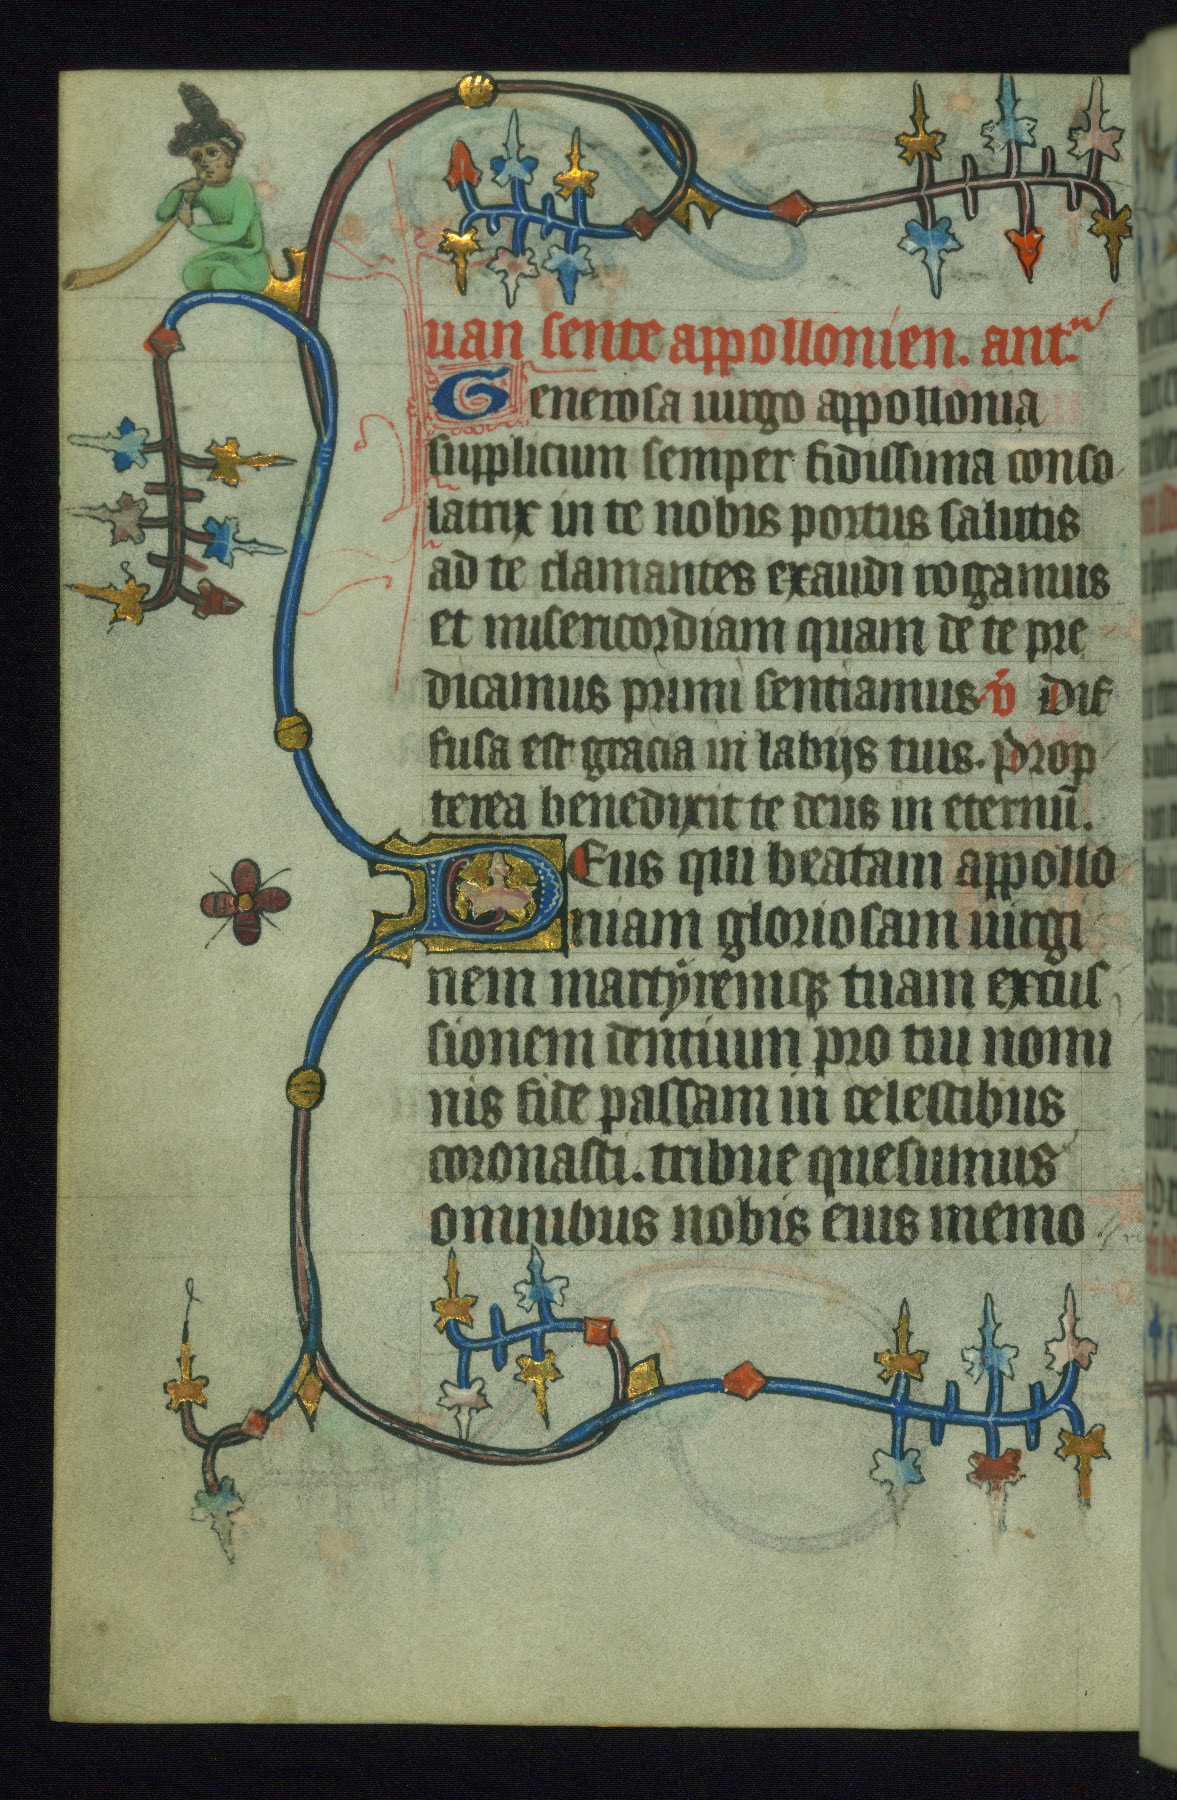 uan sente appollonien. ant.
Generosa uirgo appollonia
supplicum semper fidissima conso
latrix in te nobis portus salutis
ad te clamantes exaudi rogamus
et misericordiam quam de te pre
dicamus primi sentiamus v̄ Dif
fusa est gracia in labijs tuis. Prop
terea benedixit te deus in eternū.
Deus qui beatam appollo
niam gloriosam uirgi
nem martyremqꝫ tuam excus
sionem dentium pro tui nomi
nis fide passam in celestibus
coronasti. tribue quesumus
omnibus nobis eius memo